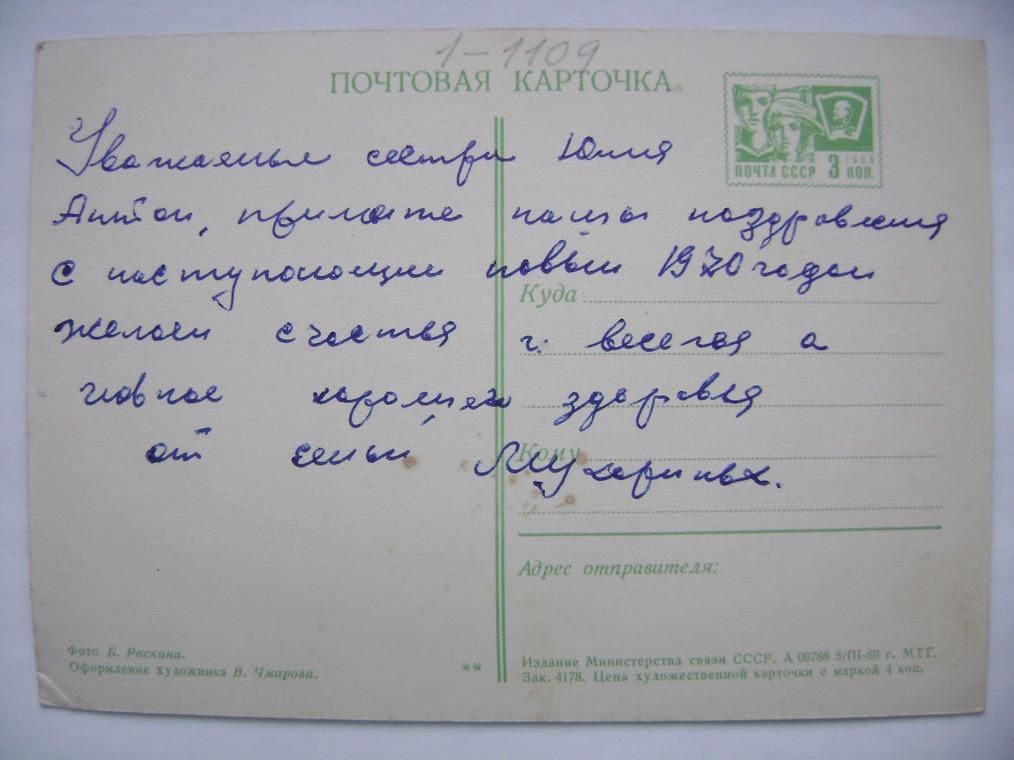 1-1109
ПОЧТОВАЯ КАРТОЧКА
ПОЧТА СССР 3 КОП.
1968
Уважаемые сестри Юлия
Антон, примите наши поздравления
с наступающим новым 1970 годом
желаем счастья веселья а
главное хорошего здоровья
от семьи Мухориных.
Куда
Кому
Адрес отправителя:
Фото Б. Раскина.
Оформление художника В. Чмарова.
**
Издание Министерства связи СССР. А 09788 5/III-69 г. МТГ.
Зак. 4178. Цена художественной карточки с маркой 4 коп.